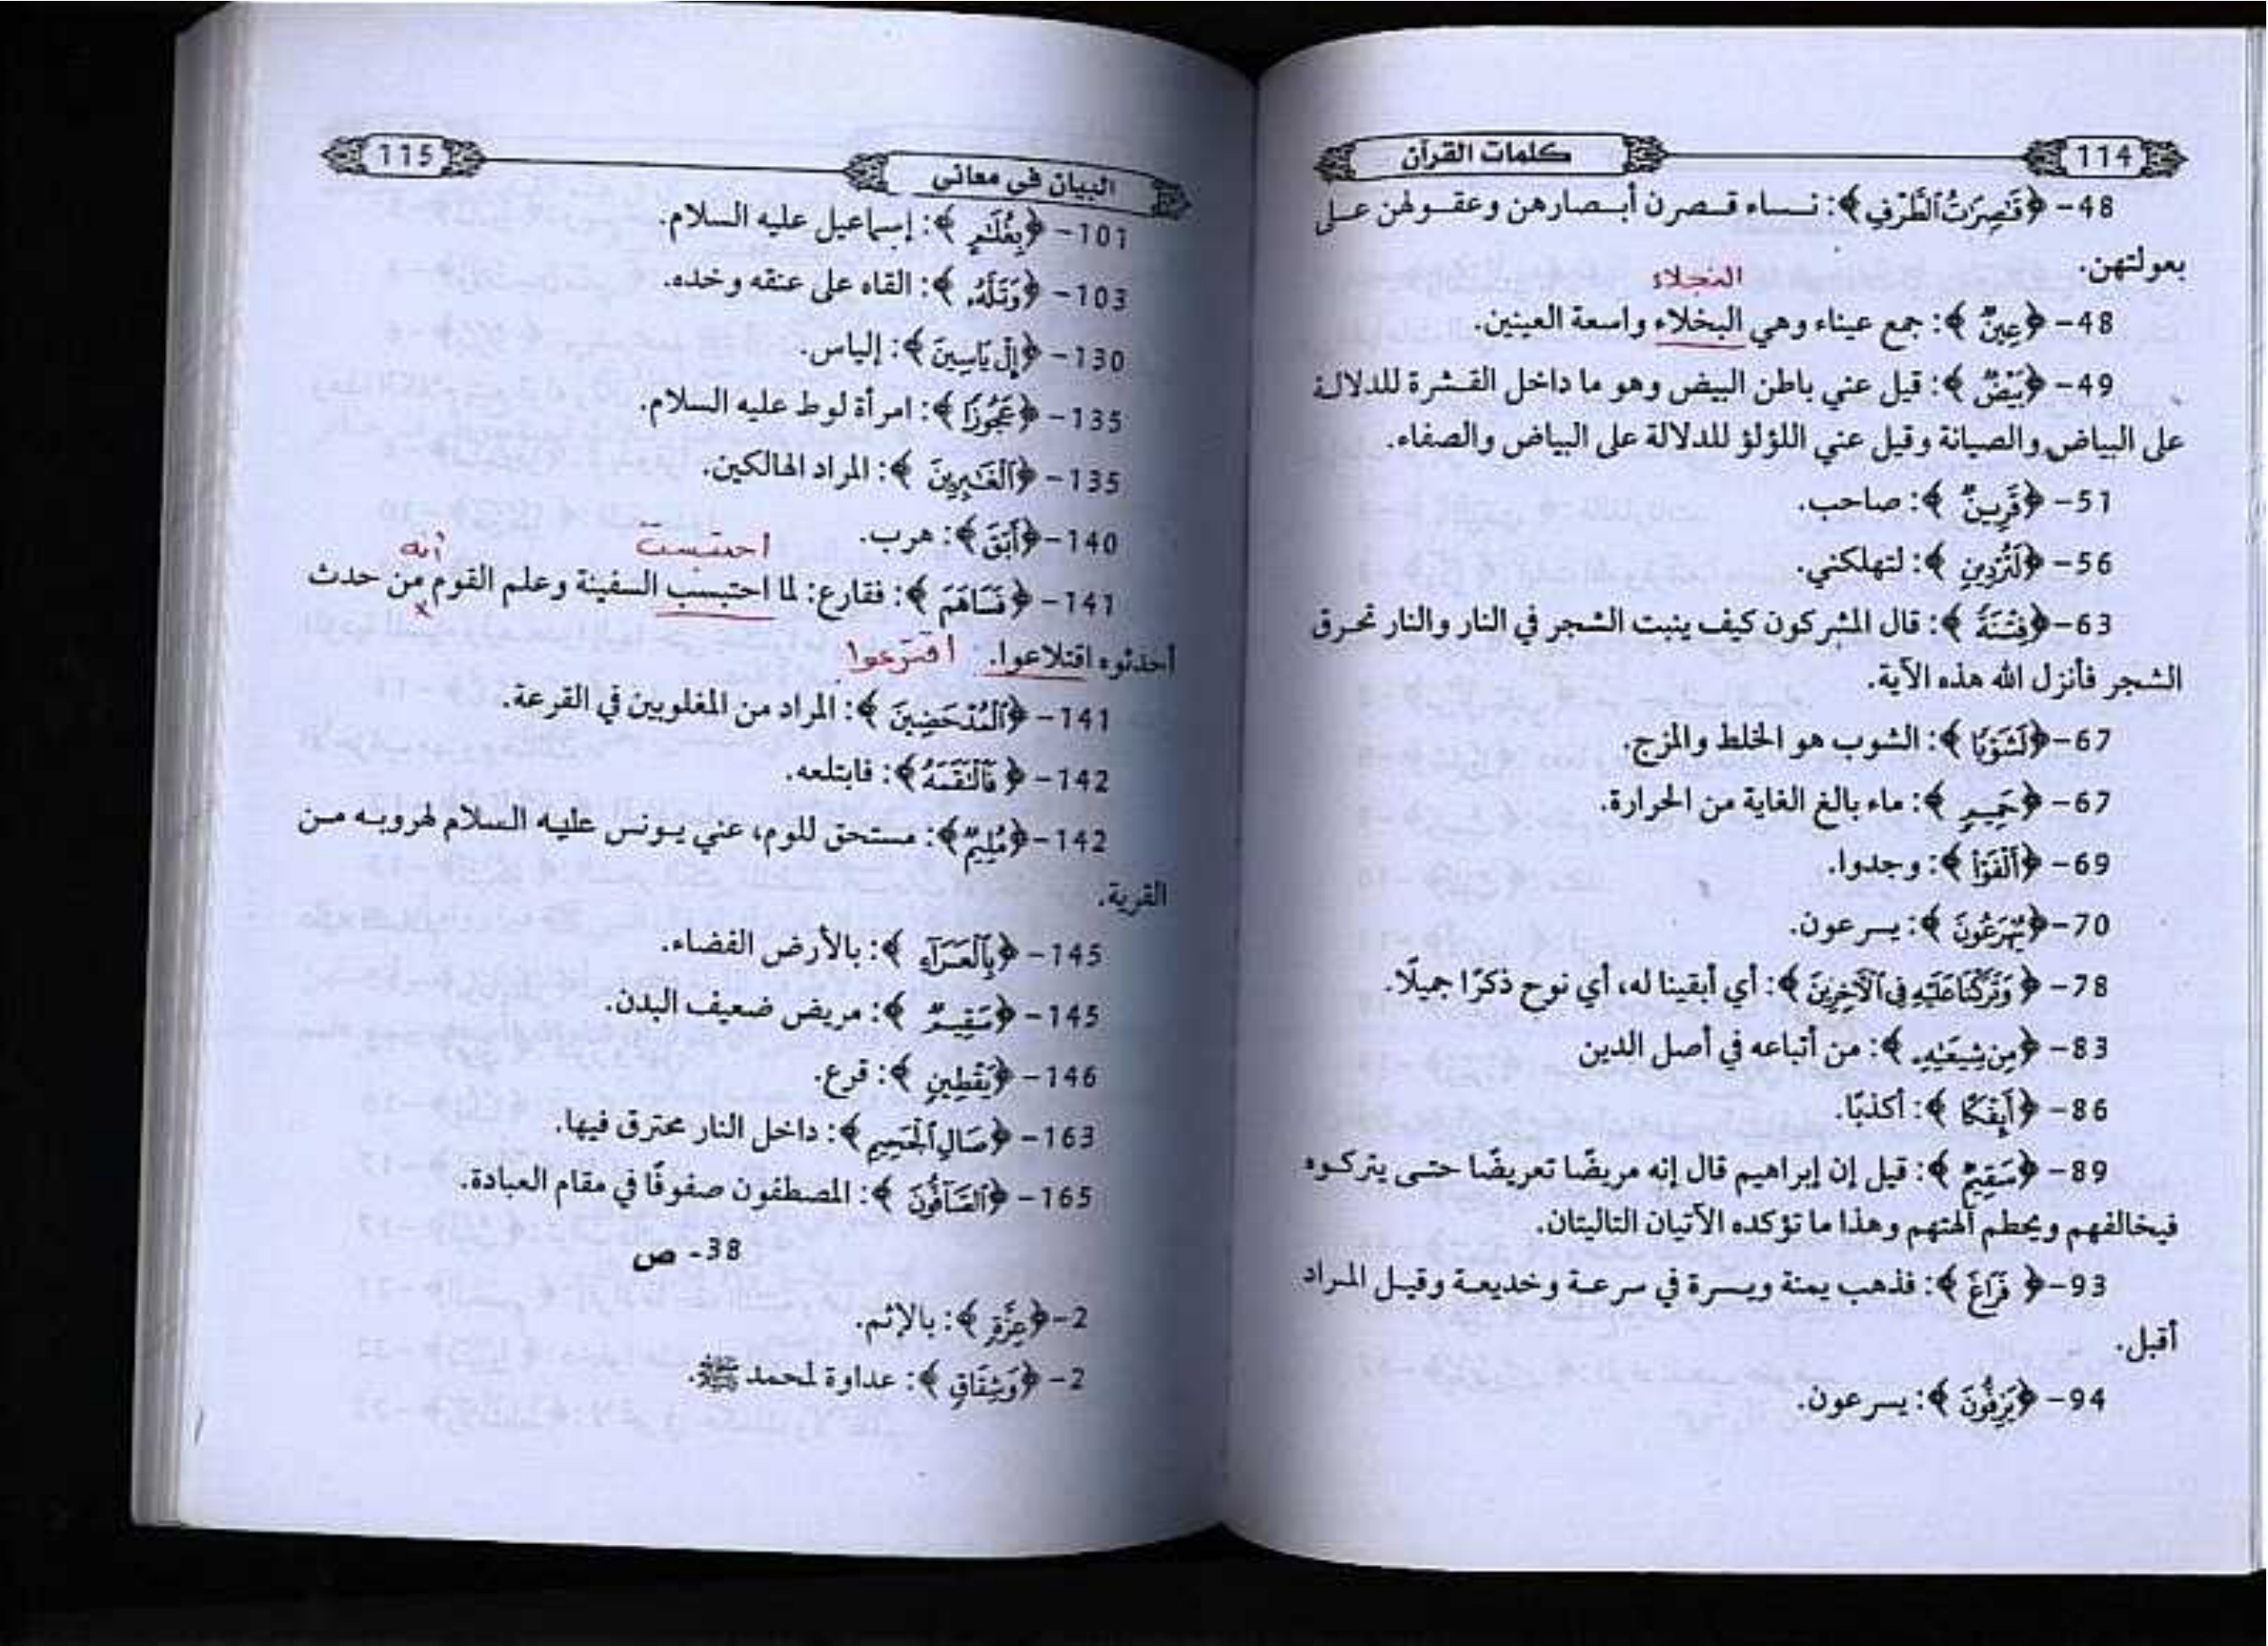 114 كلمات القرآن
48- ﴿قَٰصِرَٰتُ ٱلطَّرْفِ﴾: نساء قصرن أبصارهن وعقولهن على
بعولتهن.
النجلاء
48- ﴿عِينٌ﴾: جمع عيناء وهي البخلاء واسعة العينين.
49- ﴿بَيْضٌ﴾: قيل عني باطن البيض وهو ما داخل القشرة للدلالة
على البياض والصيانة وقيل عني اللؤلؤ للدلالة على البياض والصفاء.
51- ﴿قَرِينٌ﴾: صاحب.
56- ﴿لَتُرْدِينِ﴾: لتهلكني.
63- ﴿فِتْنَةً﴾: قال المشركون كيف ينبت الشجر في النار والنار تحرق
الشجر فأنزل الله هذه الآية.
67- ﴿لَشَوْبًا﴾: الشوب هو الخلط والمزج.
67- ﴿حَمِيمٍ﴾: ماء بالغ الغاية من الحرارة.
69- ﴿أَلْفَوْا۟﴾: وجدوا.
70- ﴿يُهْرَعُونَ﴾: يسرعون.
78- ﴿وَتَرَكْنَا عَلَيْهِ فِى ٱلْآخِرِينَ﴾: أي أبقينا له، أي نوح ذكرًا جميلًا.
83- ﴿مِن شِيعَتِهِۦ﴾: من أتباعه في أصل الدين
86- ﴿أَئِفْكًا﴾: أكذبًا.
89- ﴿سَقِيمٌ﴾: قيل إن إبراهيم قال إنه مريضًا تعريضًا حتى يتركوه
فيخالفهم ويحطم آلهتهم وهذا ما تؤكده الآتيان التاليتان.
93- ﴿فَرَاغَ﴾: فذهب يمنة ويسرة في سرعة وخديعة وقيل المراد
أقبل.
94- ﴿يَزِفُّونَ﴾: يسرعون.
البيان في معاني 115
101- ﴿بِغُلَٰمٍ﴾: إسماعيل عليه السلام.
103- ﴿وَتَلَّهُۥ﴾: القاه على عنقه وخده.
130- ﴿إِلْ يَاسِينَ﴾: إلياس.
135- ﴿عَجُوزًا﴾: امرأة لوط عليه السلام.
135- ﴿ٱلْغَٰبِرِينَ﴾: المراد الهالكين.
140- ﴿أَبَقَ﴾: هرب.
احتبست أنه
141- ﴿فَسَاهَمَ﴾: فقارع: لما احتبسب السفينة وعلم القوم من حدث
أحدثوه اقتلاعوا. اقترعوا
141- ﴿ٱلْمُدْحَضِينَ﴾: المراد من المغلوبين في القرعة.
142- ﴿فَٱلْتَقَمَهُ﴾: فابتلعه.
142- ﴿مُلِيمٌ﴾: مستحق للوم، عني يونس عليه السلام لهروبه من
القرية.
145- ﴿بِٱلْعَرَآءِ﴾: بالأرض الفضاء.
145- ﴿سَقِيمٌ﴾: مريض ضعيف البدن.
146- ﴿يَقْطِينٍ﴾: قرع.
163- ﴿صَالِ ٱلْجَحِيمِ﴾: داخل النار محترق فيها.
165- ﴿ٱلصَّآفُّونَ﴾: المصطفون صفوفًا في مقام العبادة.
38- ص
2- ﴿عِزَّةٍ﴾: بالإثم.
2- ﴿وَشِقَاقٍ﴾: عداوة لمحمد ﷺ.